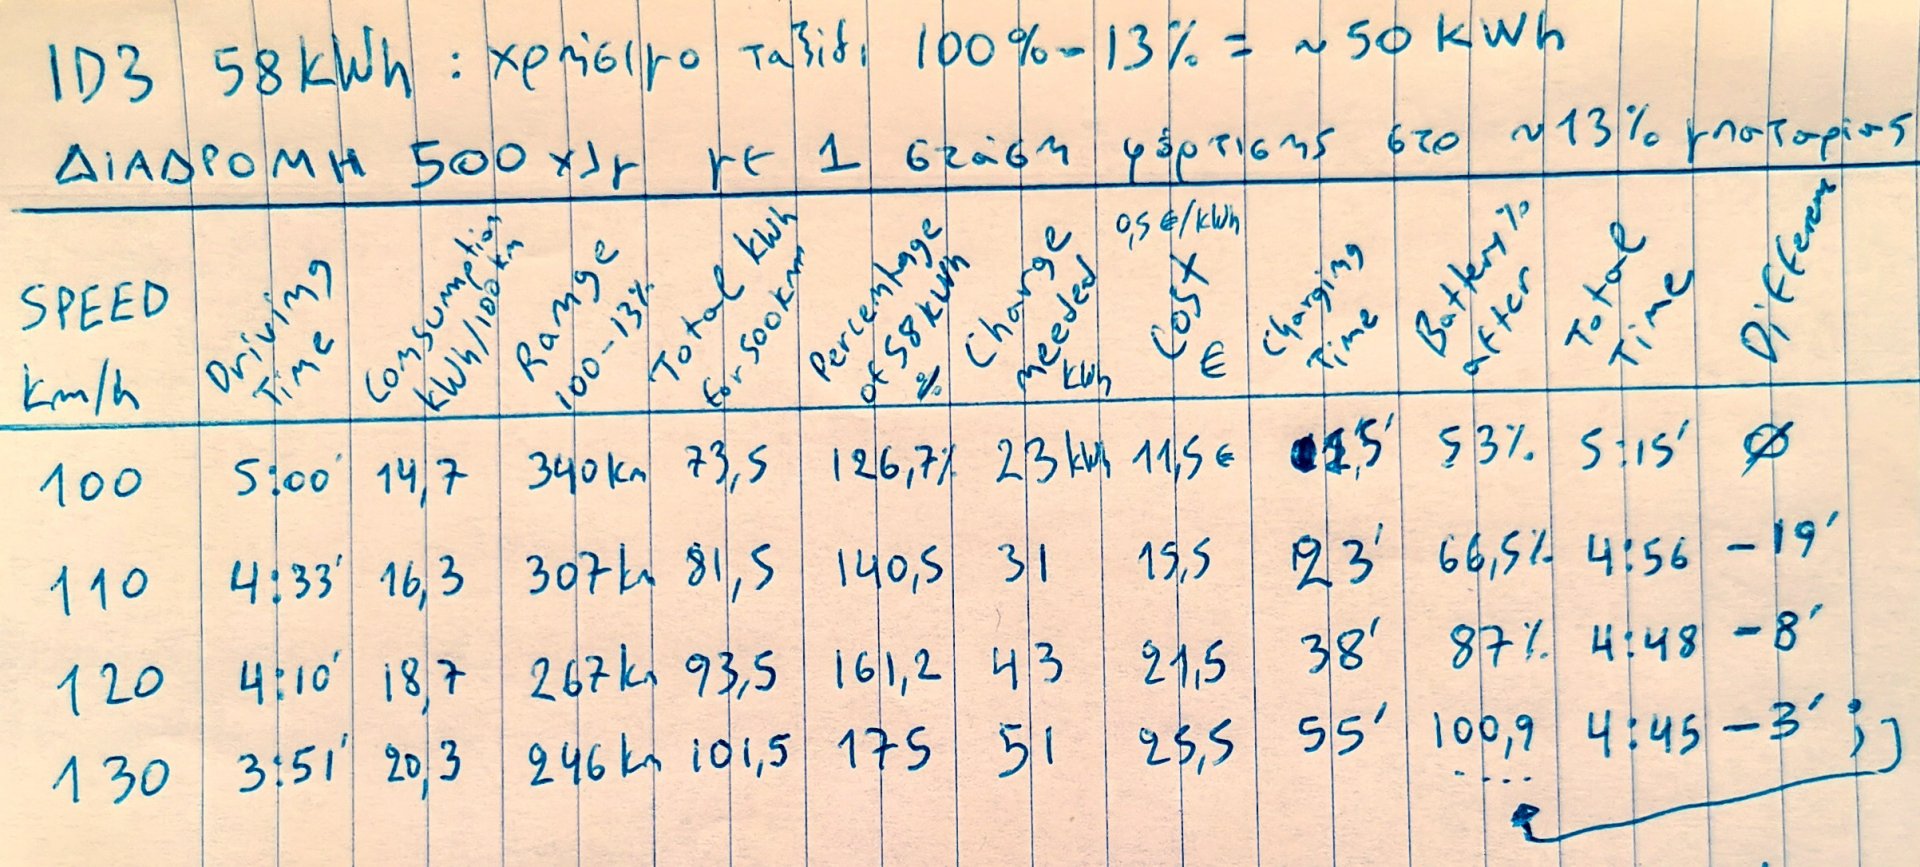 ID3 58kWh : χρήσιμο ταξίδι 100%-13% = ~50 kWh
ΔΙΑΔΡΟΜΗ 500 χλμ με 1 στάση φόρτισης στο ~13% μπαταρίας
SPEED km/h Driving Time Consumption kWh/100km Range 100-13% Total kWh for 500km Percentage of 58kWh % Charge needed kWh 0,5 €/kWh Cost € Charging Time Battery % after Total Time
100 5:00' 14,7 340km 73,5 126,7% 23 kWh 11,5 € 15' 53% 5:15' Ø
110 4:33' 16,3 307km 81,5 140,5 31 15,5 23' 66,5% 4:56 -19'
120 4:10' 18,7 267km 93,5 161,2 43 21,5 38' 87% 4:48 -8'
130 3:51' 20,3 246km 101,5 175 51 25,5 55' 100,9 4:45 -3' ;